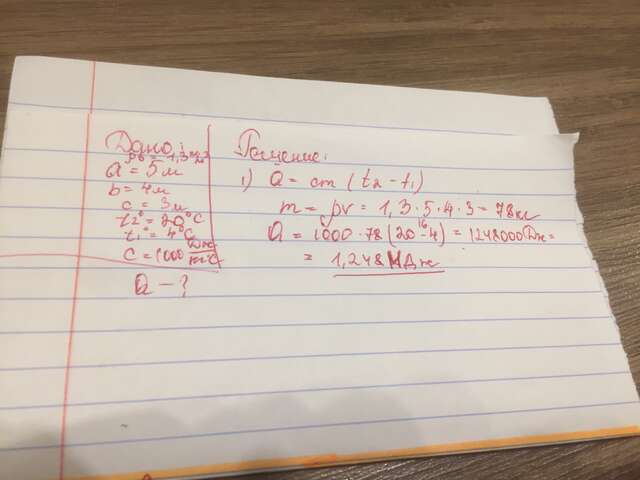 Дано:
ρв = 1,3 кг
a = 5 м
b = 4 м
c = 3 м
t2 = 20°C
t1 = 4°C
C = 1000 Дж
Q - ?
Решение:
1) Q = cm (t2 - t1)
m = ρv = 1,3 · 5 · 4 · 3 = 78 кг
Q = 1000 · 78 (20 - 4) = 1248000 Дж =
16
= 1,248 МДж